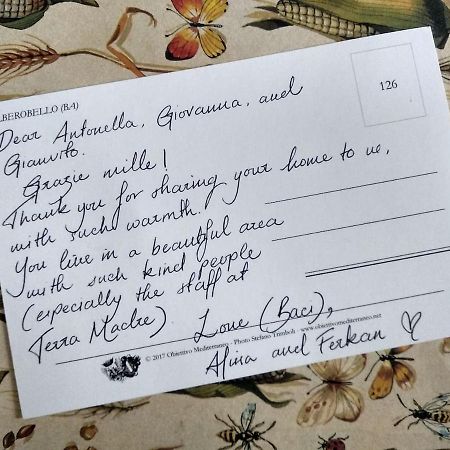 LBEROBELLO (BA)
126
Dear Antonella, Giovanna, and
Gianvito.
Grazie mille!
Thank you for sharing your home to us,
with such warmth.
You live in a beautiful area
with such kind people
(especially the staff at
Terra Madre).
Love (Baci),
Alina and Ferkan
© 2017 Obiettivo Mediterraneo - Photo Stefano Trimboli - www.obiettivomediterraneo.net